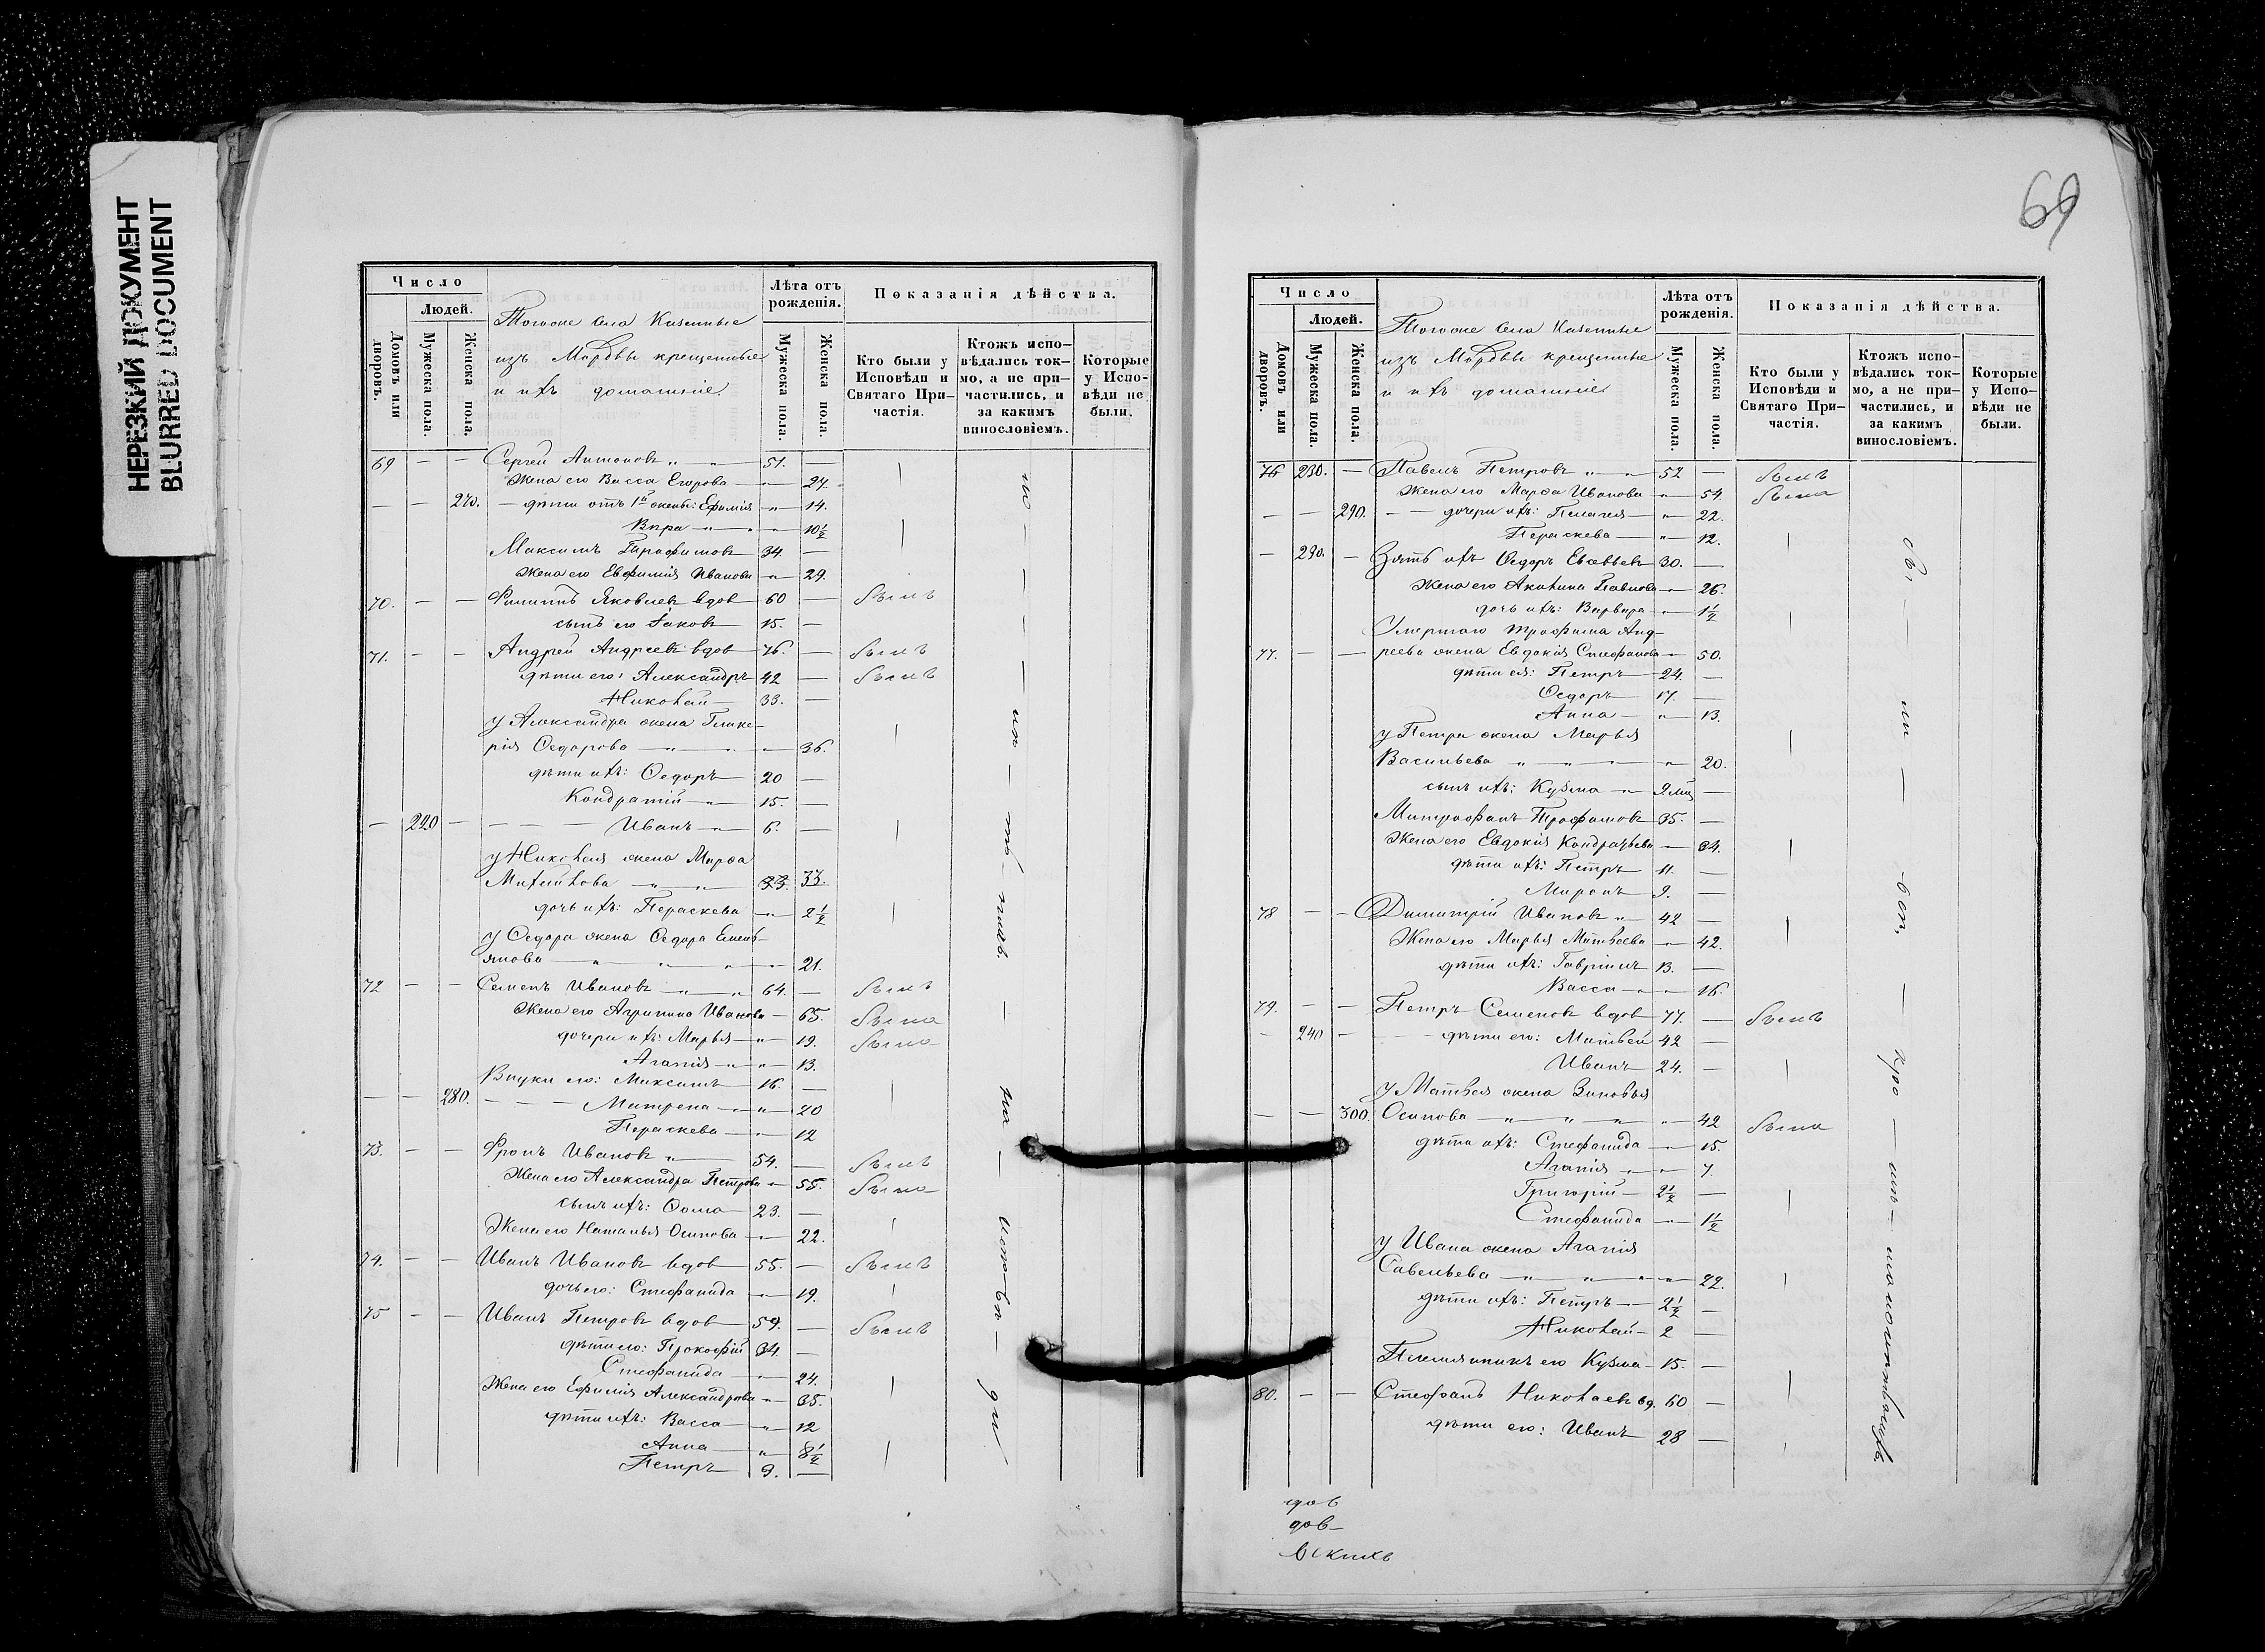 НЕРЕЗКИЙ ДОКУМЕНТ
BLURRED DOCUMENT
69
Число
Людей.
Домовъ или дворовъ.
Мужеска пола.
Женска пола.
Тогоже села Казенные
изъ Мордвы крещенные
и ихъ домашніе.
Лѣта отъ рожденія.
Мужеска пола.
Женска пола.
Показанія дѣйства.
Кто были у Исповѣди и Святаго При-частія.
Ктожъ испо-вѣдались ток-мо, а не при-частились, и за какимъ винословіемъ.
Которые у Испо-вѣди не были.
69 — — Сергей Антоновъ „ — „ 51. —
Жена его Васса Егорова — „ — 24.
— — 270. — дѣти отъ 1й жены: Ефимія — „ — 14.
Вѣра — „ — „ — 10½
Максимъ Трофимовъ 34. —
Жена его Евфимія Иванова — „ — 29.
70. — — Филиппъ Яковлевъ вдов 60 — былъ
сынъ его Іаковъ 15. —
71. — — Андрей Андреевъ вдов 76. — былъ
дѣти его: Александръ 42 — былъ
Николай — 33. —
у Александра жена Глике-
рія Ѳедорова — „ — „ — 36.
дѣти ихъ: Ѳедоръ 20 —
Кондратій — „ 15. —
— 220 — — — — Иванъ — „ 6. —
у Николая жена Марѳа
Михайлова — „ — „ 33. 33.
дочь ихъ: Параскева — „ — 2½
у Ѳедора жена Ѳедора Емель-
янова — „ — „ — „ — 21.
72 — — Семенъ Ивановъ — „ — „ 64. — былъ
Жена его Агрипина Иванова — 65. была
дочери ихъ: Марья — „ — 19. была
Агапія — „ — „ 13.
Внуки его: Максимъ 16. —
— — 280. — — — Матрена — „ — „ 20
Параскева — „ — 12
73. — — Фролъ Ивановъ „ — 54. — былъ
Жена его Александра Петрова — „ — 55. была
сынъ ихъ: Ѳома — 23. —
Жена его Наталья Осипова — „ — 22.
74. — — Иванъ Ивановъ вдов 55. — былъ
дочь его: Стефанида — „ — 19.
75 — — Иванъ Петровъ вдов 59. — былъ
дѣти его: Прокофій 34. —
Стефанида — „ — 24.
Жена его Ефимія Александрова — „ — 35.
дѣти ихъ: Васса — „ — 12
Анна — „ 8½
Петръ 9. —
Число
Людей.
Домовъ или дворовъ.
Мужеска пола.
Женска пола.
Тогоже села Казенные
изъ Мордвы крещенные
и ихъ домашніе
Лѣта отъ рожденія.
Мужеска пола.
Женска пола.
Показанія дѣйства.
Кто были у Исповѣди и Святаго При-частія.
Ктожъ испо-вѣдались ток-мо, а не при-частились, и за какимъ винословіемъ.
Которые у Испо-вѣди не были.
76 230. — Павелъ Петровъ „ — „ 52 — былъ
Жена его Марѳа Иванова — „ — 54. была
— — 290. — — дочери ихъ: Пелагея — „ — 22.
Параскева — „ — 12.
— 230. — Зять ихъ Ѳедоръ Евсевьевъ 30. —
Жена его Акилина Павлова — 26.
дочь ихъ: Варвара — „ — 1½
Умершаго Трофима Анд-
77. — — реева жена Евдокія Стефанова — 50.
дѣти ея: Петръ 24. —
Ѳедоръ 17. —
Анна — „ — 13.
у Петра жена Марья
Васильева „ — „ — „ — 20.
сынъ ихъ: Кузма — „ 9 мц —
Митрофанъ Трофимовъ 35. —
Жена его Евдокія Кондратьева — 34.
дѣти ихъ: Петръ 11. —
Миронъ 9. —
78 — — Димитрій Ивановъ „ 42 —
Жена его Марья Матвѣева — „ — 42.
дѣти ихъ: Гавріилъ 13. —
Васса — „ — 16.
79. — — Петръ Семеновъ вдов 77. — былъ
— 240 — — — дѣти его: Матвей 42 —
Иванъ 24. —
у Матвея жена Зиновья
— — 300. Осипова — „ — „ — „ — 42 была
дѣти ихъ: Стефанида — „ — 15.
Агапія — „ — 7.
Григорій — 2½ —
Стефанида — „ — 1½
у Ивана жена Агапія
Савельева — „ — „ — „ — 22.
дѣти ихъ: Петръ — 2½ —
Николай — 2 —
Племянникъ его Кузма — 15. —
80. — — Стефанъ Николаевъ вд. 60 —
дѣти его: Иванъ 28 —
дов
дов—